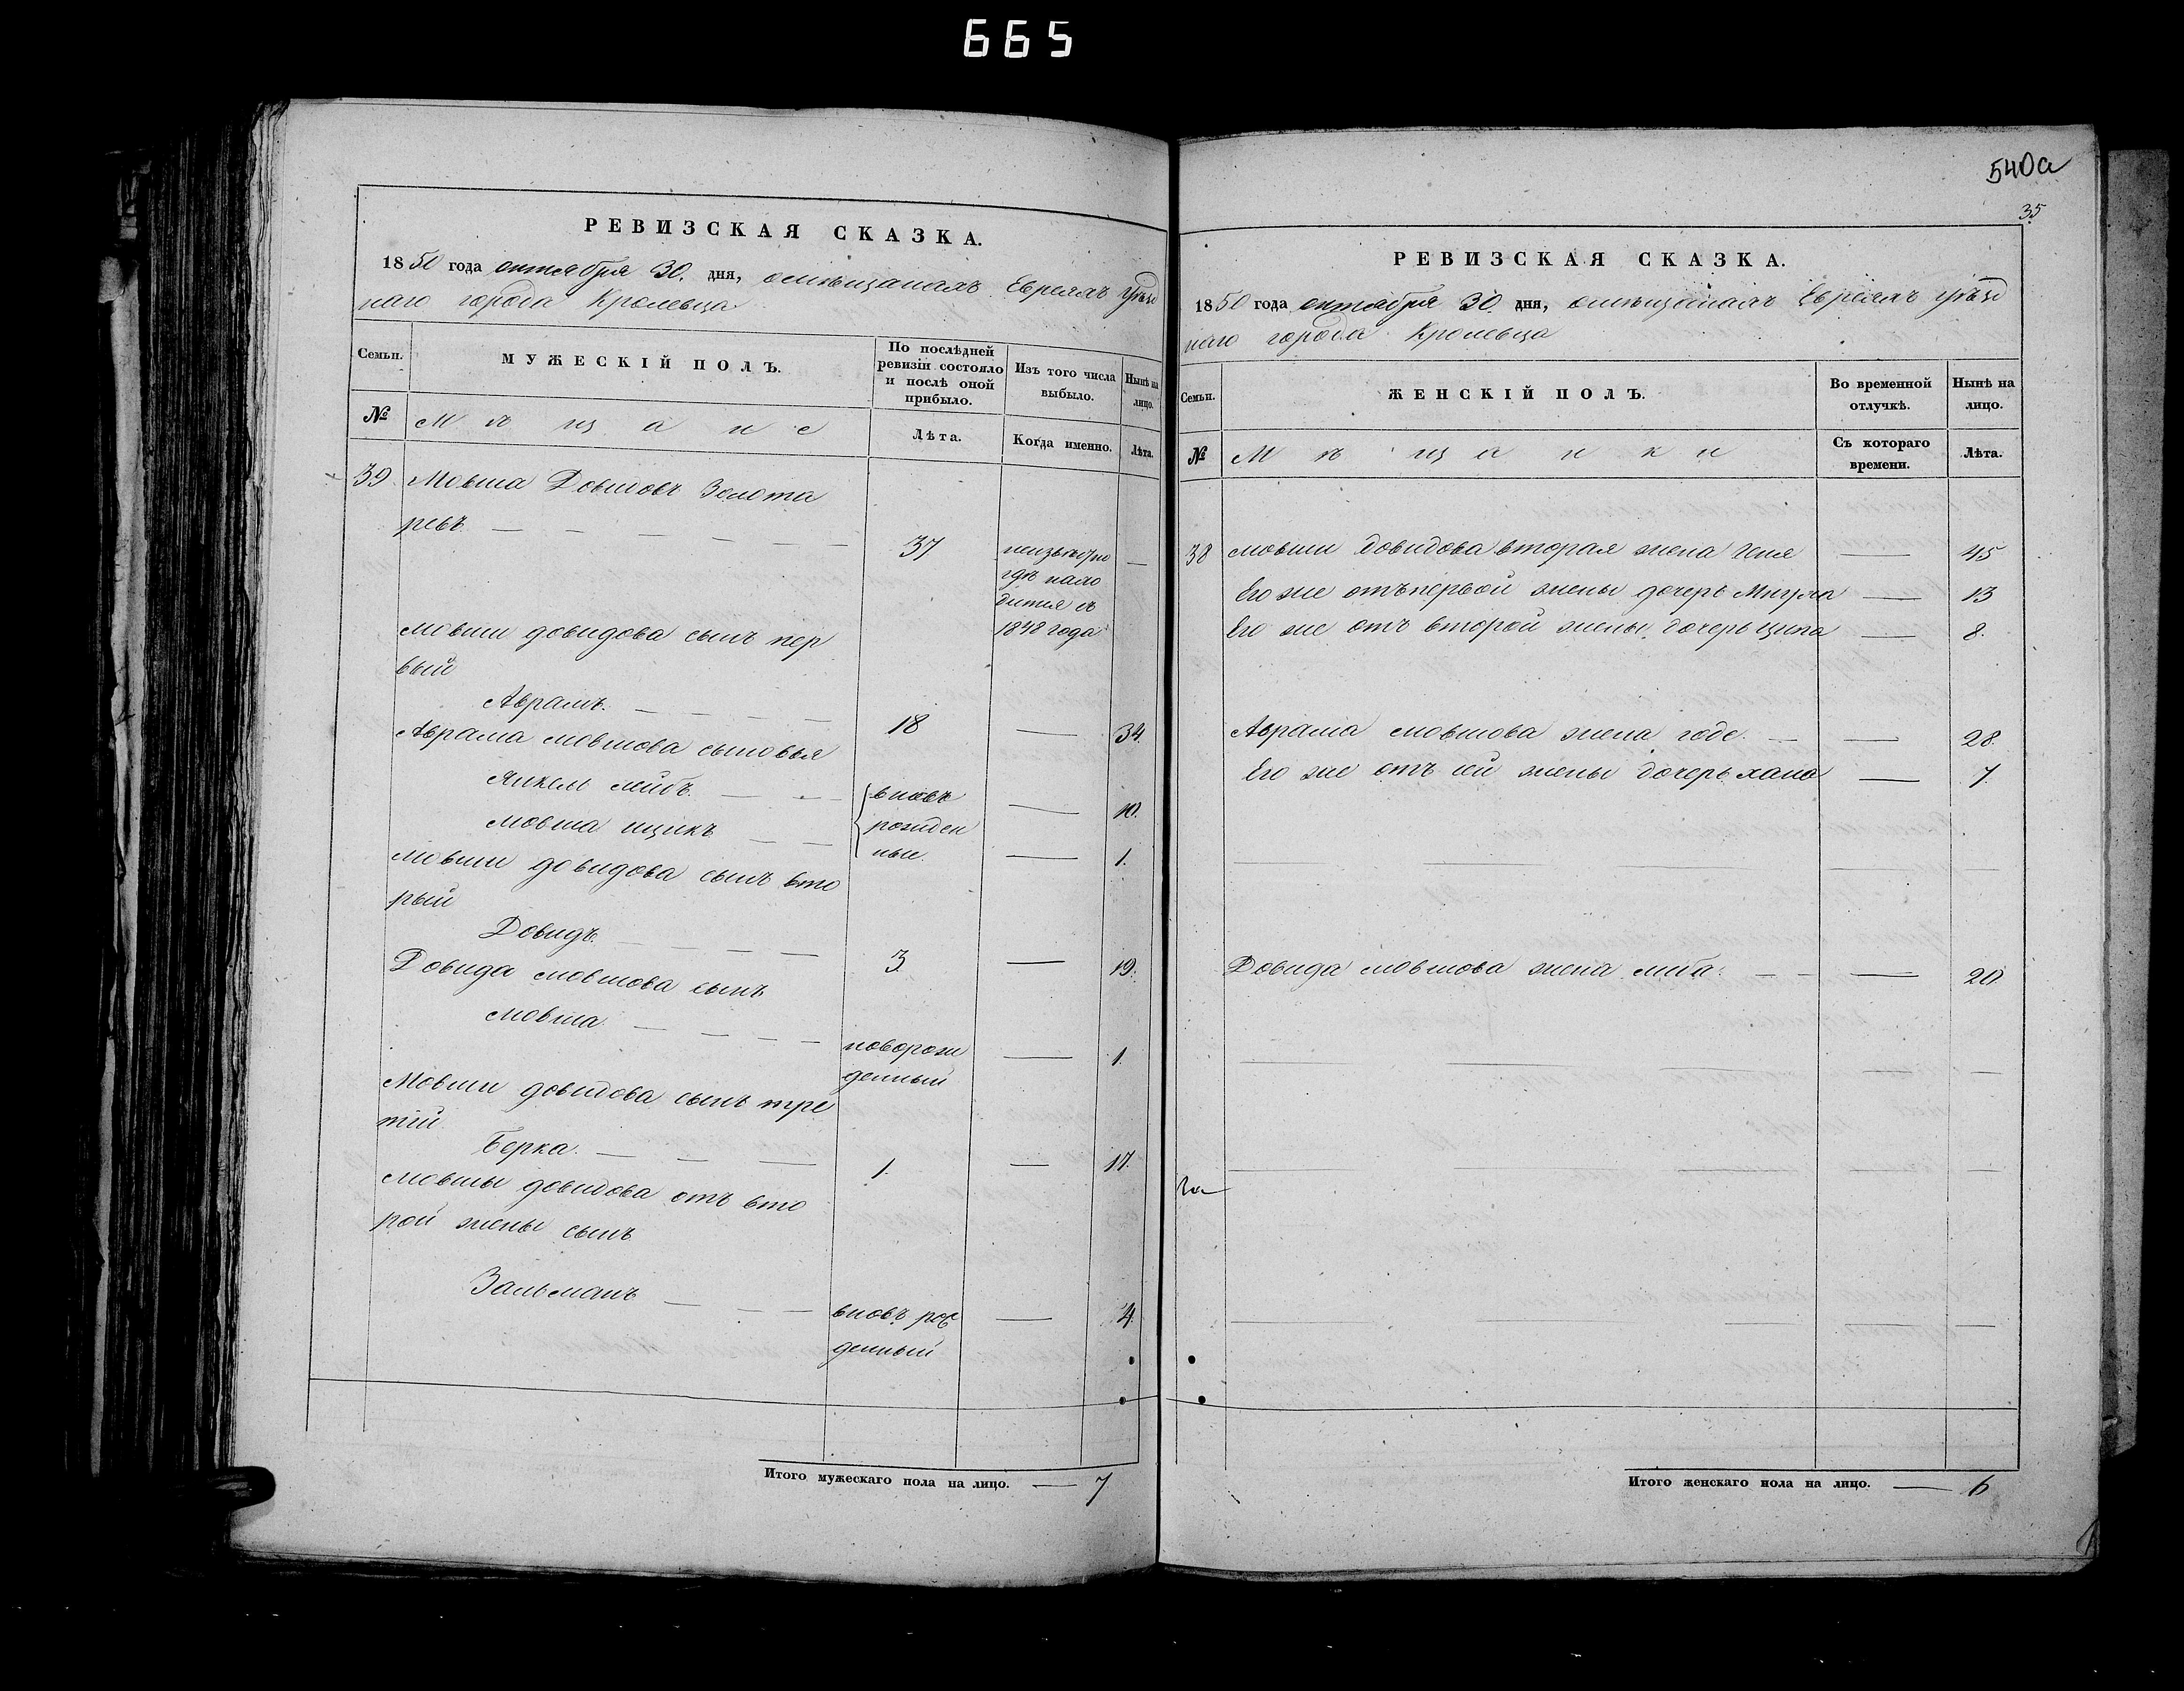 665
РЕВИЗСКАЯ СКАЗКА.
1850 года октября 30. дня, о мѣщанахъ Евреяхъ уѣзд
наго города Кролевца
Семьи.
МУЖЕСКІЙ ПОЛЪ.
По послѣдней
ревизіи состояло
и послѣ оной
прибыло.
Изъ того числа
выбыло.
Нынѣ на
лицо.
№
Мѣщане
Лѣта.
Когда именно.
Лѣта.
39 Мовша Довидовъ Золота
ревъ — — — — — 37 неизвѣстно —
гдѣ нахо
дится съ
1848 года
Мовши Довидова сынъ пер
вый
Аврамъ. — — — — 18 — 34.
Аврама Мовшова сыновья
Янкель Лейбъ — — вновь — 10.
Мовша Ицикъ — — рожден
ные. — 1.
Мовши Довидова сынъ вто
рый
Довидъ. — — — — 3 — 19.
Довида Мовшова сынъ
Мовша. — — — — новорож — 1.
денный
Мовши Довидова сынъ тре
тій
Берка. — — — 1. — 17.
Мовши Довидова отъ вто
рой жены сынъ
Зальманъ — — — вновь рож — 4.
денный
Итого мужескаго пола на лицо. — 7
540а
35
РЕВИЗСКАЯ СКАЗКА.
1850 года октября 30. дня, о мѣщанахъ Евреяхъ уѣзд
наго города Кролевца
Семьи.
ЖЕНСКІЙ ПОЛЪ.
Во временной
отлучкѣ.
Нынѣ на
лицо.
№
Мѣщанки
Съ котораго
времени.
Лѣта.
38 Мовши Довидова вторая жена Геня — 45
Его же отъ первой жены дочерь — 13
Его же отъ второй жены дочерь Ципа — 8.
Аврама Мовшова жена Годе. — — 28.
Его же отъ сей жены дочерь Хана — 7.
Довида Мовшова жена Либа. — — — 20
Итого женскаго пола на лицо. — 6